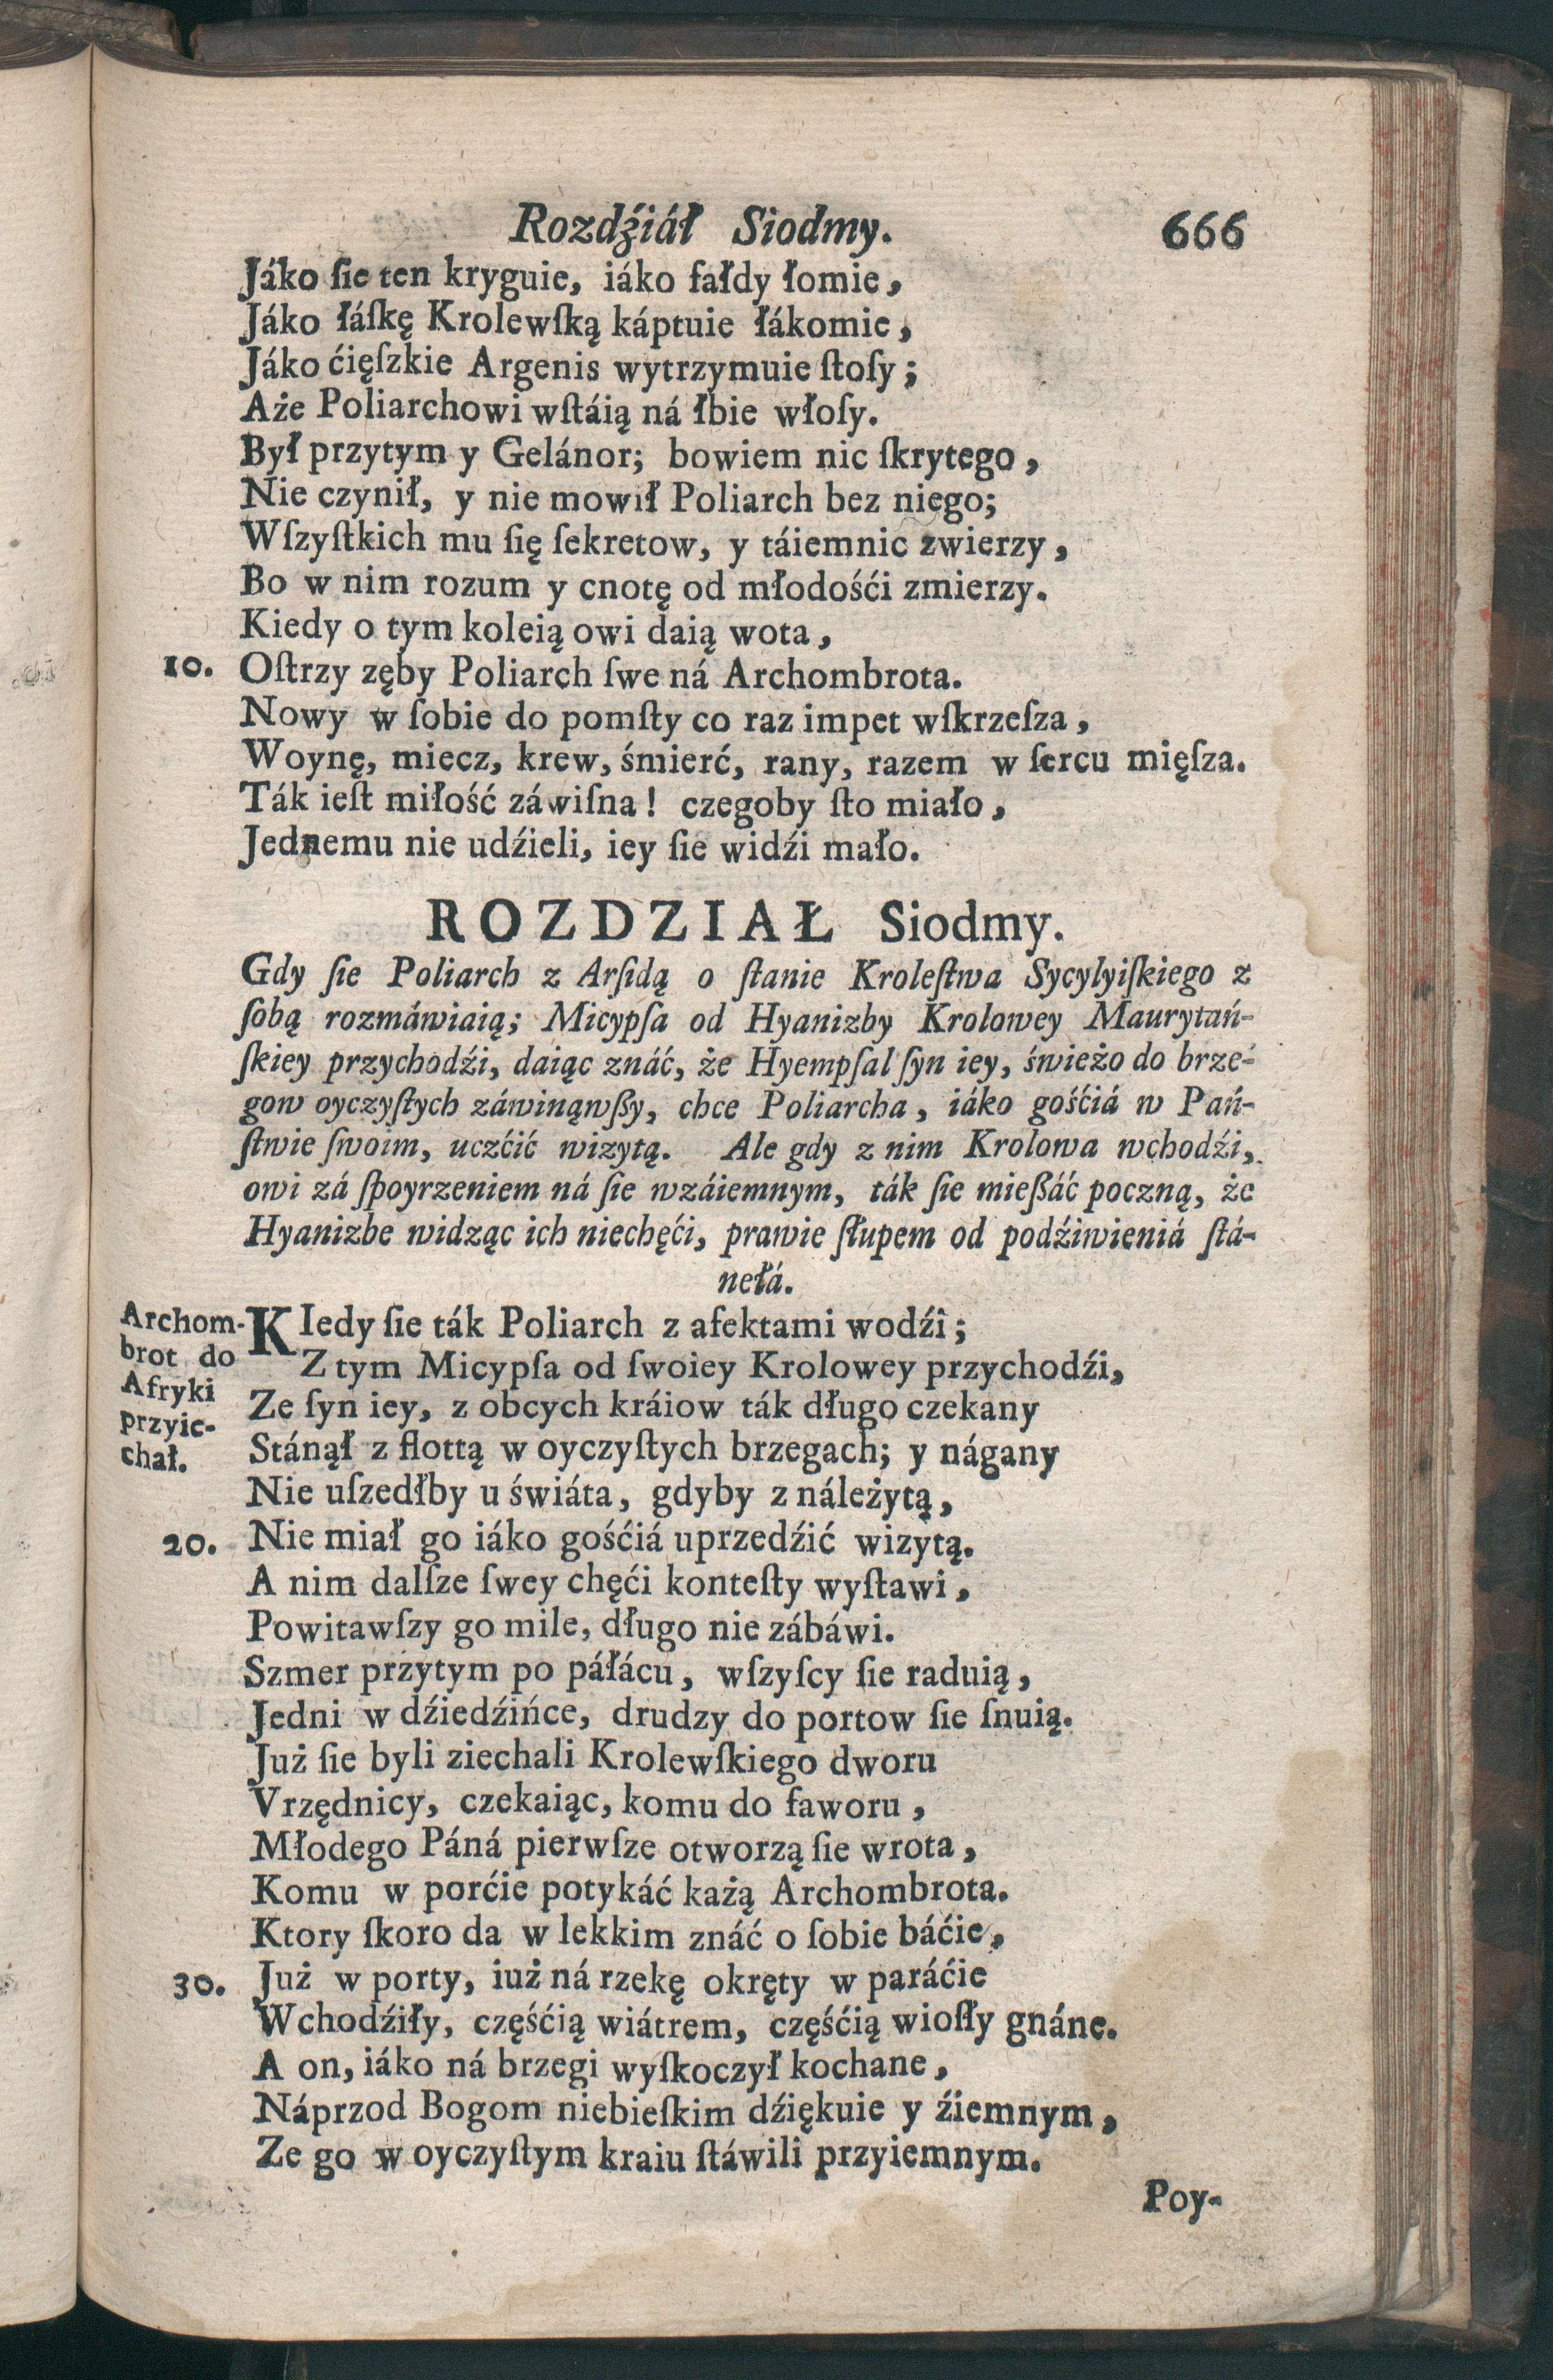 Rozdźiáł Siodmy. 666
Jáko ſie ten kryguie, iáko fałdy łomie,
Jáko łáſkę Krolewſką káptuie łákomie,
Jáko ćięſzkie Argenis wytrzymuie ſtoſy;
Aże Poliarchowi wſtáią ná łbie włoſy.
Był przytym y Gelánor; bowiem nic ſkrytego,
Nie czynił, y nie mowił Poliarch bez niego;
Wſzyſtkich mu ſię ſekretow, y táiemnic zwierzy,
Bo w nim rozum y cnotę od młodośći zmierzy.
Kiedy o tym koleią owi daią wota,
10. Oſtrzy zęby Poliarch ſwe ná Archombrota.
Nowy w ſobie do pomſty co raz impet wſkrzeſza,
Woynę, miecz, krew, śmierć, rany, razem w ſercu mięſza.
Ták ieſt miłość záwiſna! czegoby ſto miało,
Jednemu nie udźieli, iey ſie widźi mało.
ROZDZIAŁ Siodmy.
Gdy ſie Poliarch z Arſidą o ſtanie Kroleſtwa Sycylyiſkiego z
ſobą rozmáwiaią; Micypſa od Hyanizby Krolowey Maurytań-
ſkiey przychodźi, daiąc znáć, że Hyempſal ſyn iey, świeżo do brze-
gow oyczyſtych záwinąwßy, chce Poliarcha, iáko gośćiá w Pań-
ſtwie ſwoim, uczćić wizytą. Ale gdy z nim Krolowa wchodźi,
owi zá ſpoyrzeniem ná ſie wzáiemnym, ták ſie mießáć poczną, że
Hyanizbe widząc ich niechęći, prawie ſłupem od podźiwieniá ſtá-
nełá.
Archom-
brot do
Afryki
przyie-
chał.
KIedy ſie ták Poliarch z afektami wodźi;
Z tym Micypſa od ſwoiey Krolowey przychodźi,
Ze ſyn iey, z obcych kráiow ták długo czekany
Stánął z flottą w oyczyſtych brzegach; y nágany
Nie uſzedłby u świáta, gdyby z náleżytą,
20. Nie miał go iáko gośćiá uprzedźić wizytą.
A nim dalſze ſwey chęći konteſty wyſtawi,
Powitawſzy go mile, długo nie zábáwi.
Szmer przytym po páłácu, wſzyſcy ſie raduią,
Jedni w dźiedźińce, drudzy do portow ſie ſnuią.
Już ſie byli ziechali Krolewſkiego dworu
Vrzędnicy, czekaiąc, komu do faworu,
Młodego Páná pierwſze otworzą ſie wrota,
Komu w porćie potykáć każą Archombrota.
Ktory ſkoro da w lekkim znáć o ſobie báćie,
30. Już w porty, iuż ná rzekę okręty w paráćie
Wchodźiły, częśćią wiátrem, częśćią wioſły gnáne.
A on, iáko ná brzegi wyſkoczył kochane,
Náprzod Bogom niebieſkim dźiękuie y źiemnym,
Ze go w oyczyſtym kraiu ſtáwili przyiemnym.
Poy-